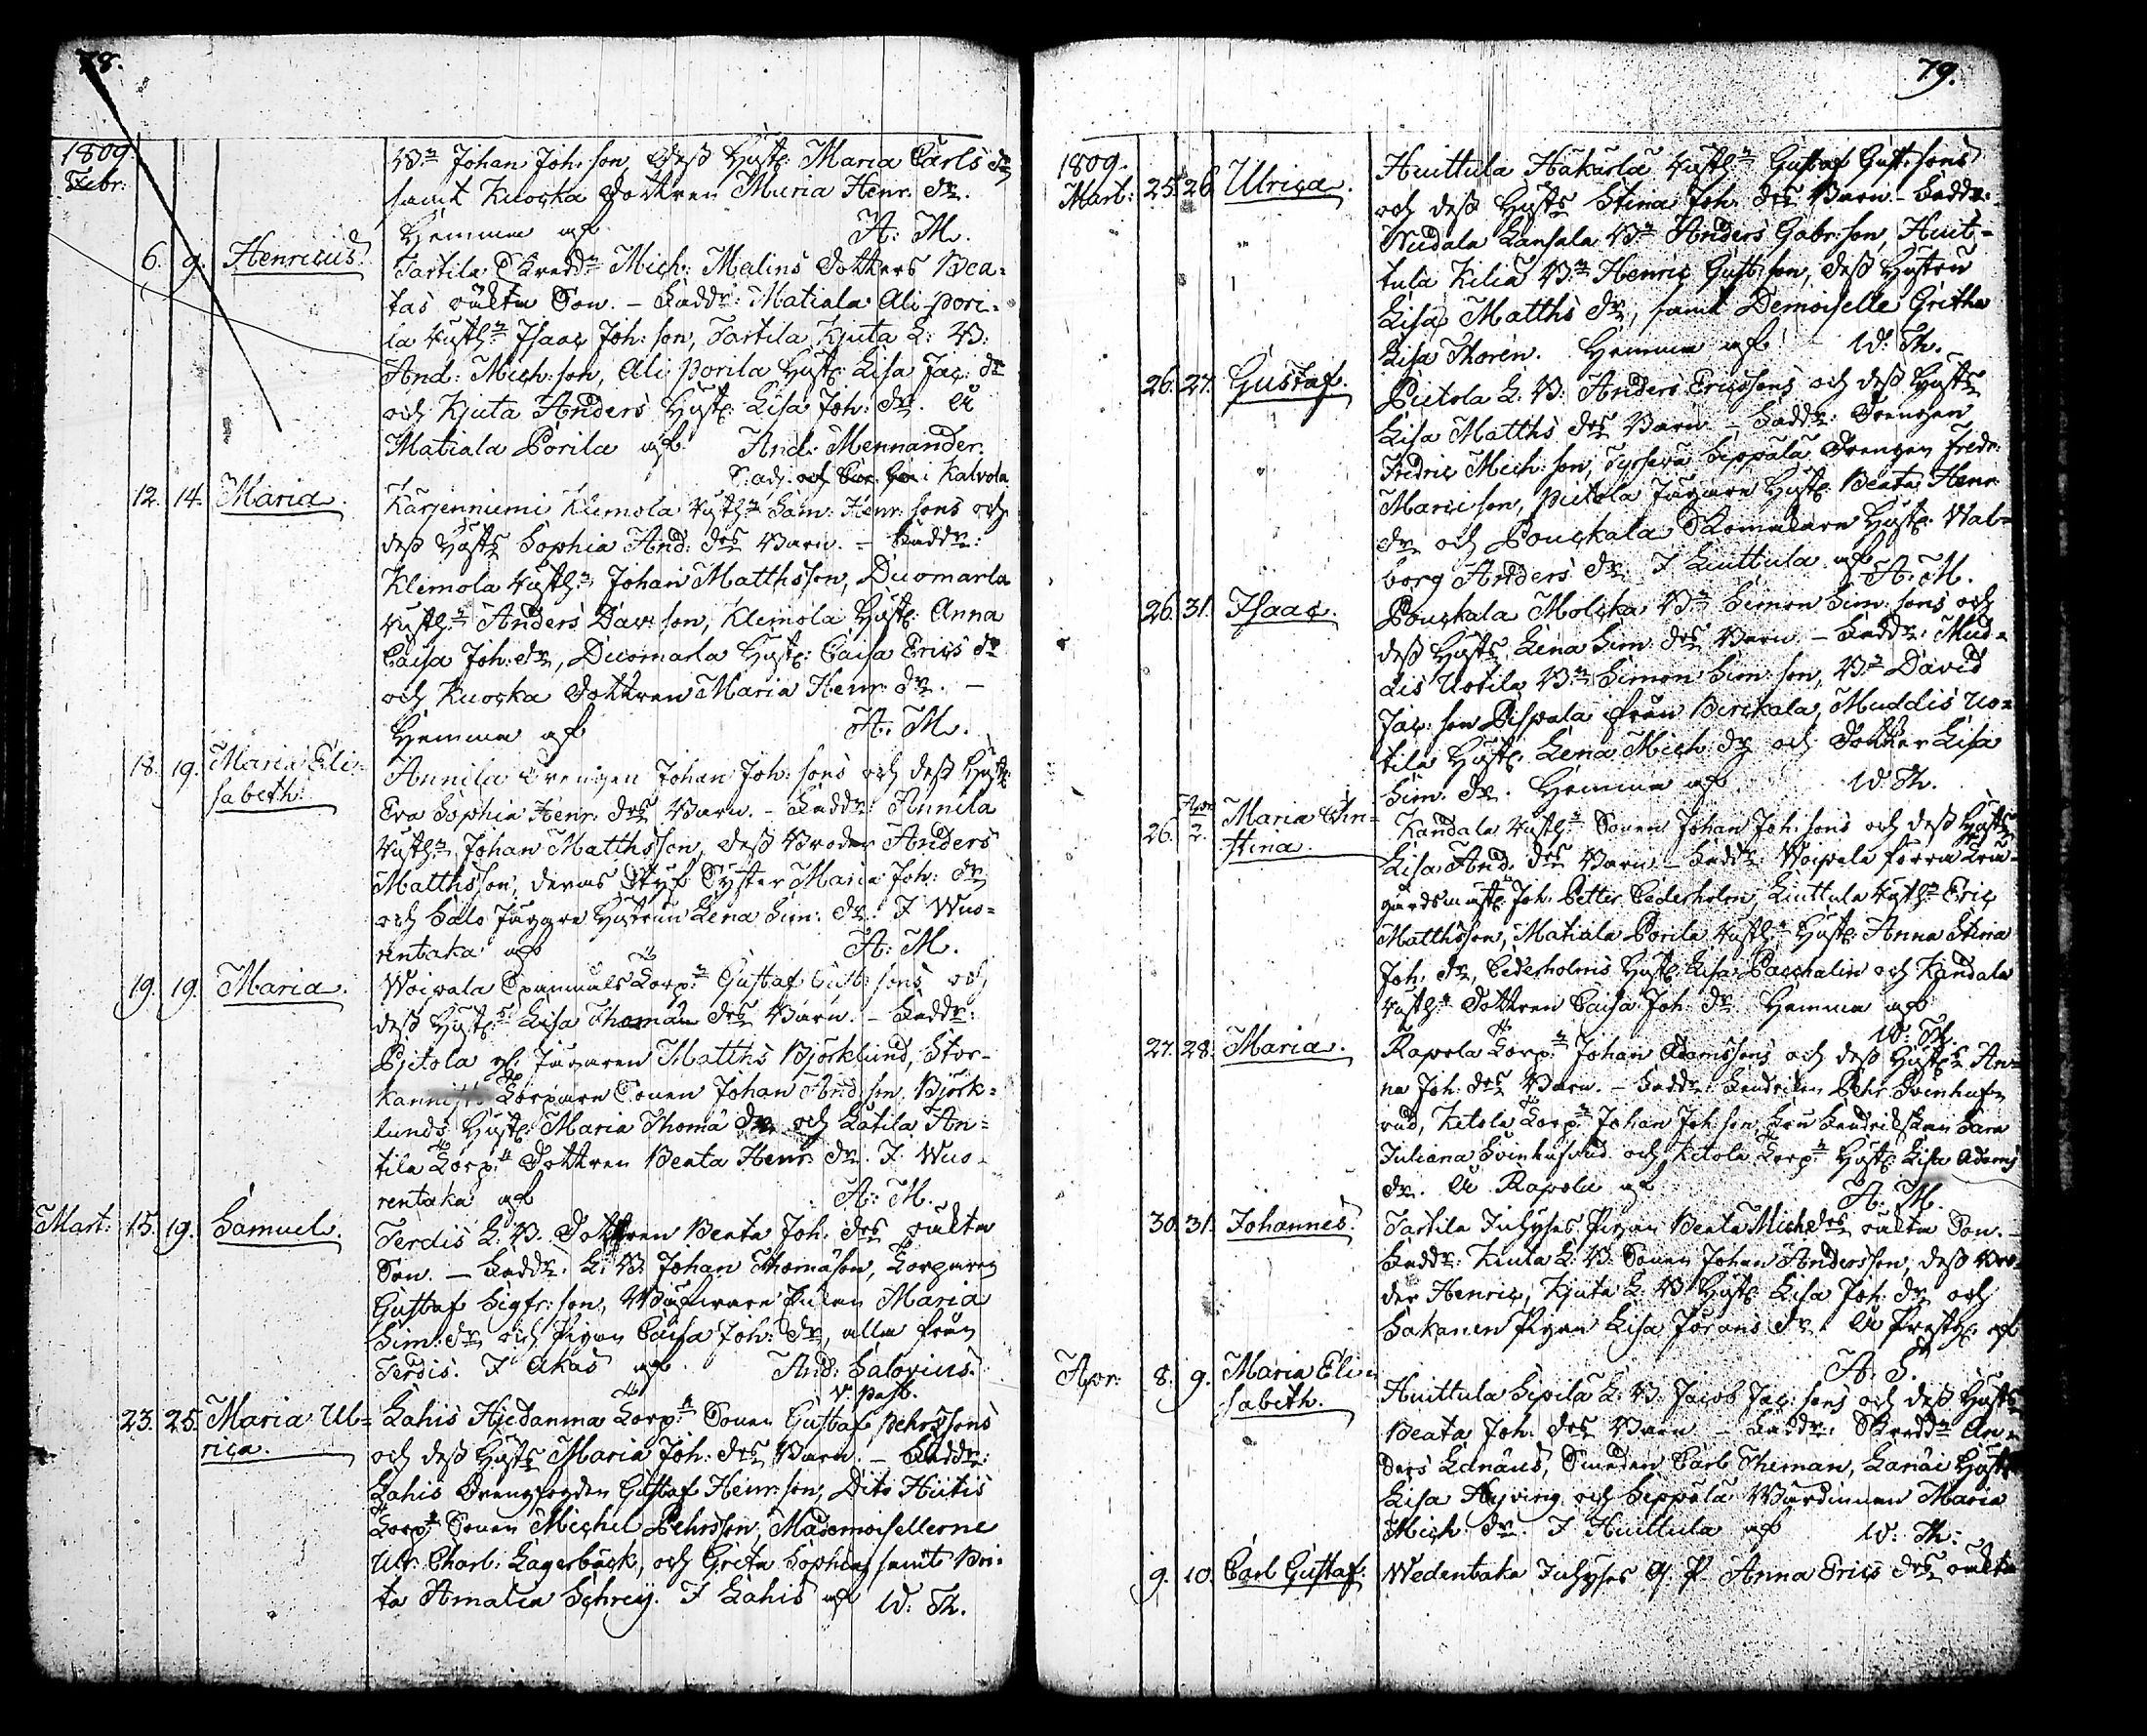 78.
1809.
Febr:
Bn Johan Joh: son, dess Hust: Maria Carls dr
samt Kuocka dottren Maria Henr: dr.
Hemma af A: M.
6. 9. Henricus.
Tartila Skredd: Mich: Melins dotters Bea-
tas oäkta Son. - Faddr: Matiala Ali-pori-
la Rusth: Isaac Joh: son, Tartila Kjuta L: B:
And: Mich: son, Ali porila Hust: Lisa Jac: dr
och Kjuta Anders Hust: Lisa Joh: dr. A
Matiala Porila af And: Mennander.
S. adj. och i Kalvola
12. 14. Maria.
Karjenniemi Klemola Rusth: Sam: Henr: sons och
dess Hust: Sophia And: drs Barn. - Faddr:
Klemola Rusth: Johan Matthsson, Duomarla
Rusth: Anders Dav: son, Klemola Hust: Anna
Caisa Joh: dr, Duomarla Hust: Caisa Erics dr
och Kuocka dottren Maria Henr: dr. -
Hemma af A: M.
18. 19. Maria Eli-
sabeth.
Annila Drengen Johan Joh: sons och dess Hust:
Eva Sophia Henr: drs Barn. - Faddr: Annila
Rusth: Johan Matthsson, dess Broder Anders
Matthsson, deras Styf Syster Maria Joh: dr
och Salo Jägare Hustrun Lena Sim: dr. I Wuo-
rentaka af A: M.
19. 19. Maria.
Woipala Spanmåls Torp: Gustaf Gust: sons och
dess Hust: Lisa Thomä drs Barn. - Faddr:
Pjtola Jägaren Matths Björklund, Stor-
Torparen Sonen Johan And: son, Björk-
lunds Hust: Maria Thomä dr och Latila An-
tila Torp: Dottren Beata Henr: dr. I Wuo-
rentaka af A: M.
Mart: 15. 19. Samuel.
Terdis L: B. Dottren Beata Joh: drs oäkta
Son. - Faddr: L: B: Johan Thomäson, Torparen
Gustaf Sigfr: son, Pigan Maria
Sim: dr och Pigan Caisa Joh: dr, alla från
Terdis. I Akas af And: Salovius.
v. past.
23. 25. Maria Ul-
rica.
Lahis Hjedanma Torp: Sonen Gustaf Pehrssons
och dess Hust: Maria Joh: drs Barn. - Faddr:
Lahis Drengfogden Gustaf Henr: son, Dito Hiitis
Torp: Sonen Michel Pehrsson, Mademoisellerne
Ulr: Charl: Lagerbäck, och Greta Sophia samt Bri-
ta Amalia Schrey. I Lahis af W: Th.
79.
1809.
Mart: 25. 26. Ulrica.
Huittula Hakarla Rusth: Gustaf Gust: sons
och dess Hust: Stina Joh: drs Barn. - Faddr:
Nudala Lansala Bn Anders Gabr: son, Huit-
tula Kilia Bn Henric Gust: son, dess Hustru
Lisa Matths dr, samt Demoiselle Gretha
Lisa Thoren. Hemma af W: Th.
26. 27. Gustaf.
Pietola L: B: Anders Ericssons och dess Hust:
Lisa Matths drs Barn. - Faddr: Drengen
Fridric Mich: son, Seppälä Drengen Fredr:
son, Pietola Jägare Hust: Beata Henr:
dr och Pouckala Skomakare Hust: Wal-
borg Anders dr. I Liuttula af A: M.
26. 31. Isaac.
Pouckala Molska Bn Simon Sim: sons och
dess Hust: Lena Sim: drs Barn. - Faddr: Mud-
dis Uotila Bn Simon Sim: son, Bn David
Jac: son Pispala från Birckala, Muddis Uo-
tila Hust: Lena Mich: dr och Dotter Lisa
Sim: dr. Hemma af W: Th.
26. Apr. 2. Maria Chri-
stina.
Kandala Rusth: Sonen Johan Joh: sons och dess Hust:
Lisa And: drs Barn. - Faddr: Woipala förra
gårdsmäst: Joh: Petter Cederholm, Liuttula Rusth: Eric
Matthsson, Matiala Porila Rusth: Hust: Anna Stina
Joh: dr, Cederholms Hust: Lisa Paschalin och Kandala
Rusth: Dottren Caisa Joh: dr. Hemma af
W: Th.
27. 28. Maria.
Rapola Torp: Johan Adamssons och dess Hust: An-
na Joh: drs Barn. - Faddr: Fendriken Pehr Svinhuf-
vud, Ketola Torp: Johan Joh: son, Fru Fendrikskan Sara
Juliana Svinhufvud och Ketola Torp: Hust: Lisa Adams
dr. A Rapola af A: M.
30. 31. Johannes.
Tartila Inhyses Pigan Beata Mich: drs oäkta Son. -
Faddr: Kjuta L: B: Sonen Johan Andersson, dess Bro-
der Henric, Kjuta L: B: Hust: Lisa Joh: dr och
Sakanen Pigan Lisa Jörans dr. A Prestg: af
A: S.
Apr: 8. 9. Maria Eli-
sabeth.
Huittula Sipilä L: B: Jacob Jac: sons och dess Hust:
Beata Joh: drs Barn. - Faddr: Skredd: An-
ders Lanæus, Smeden Carl Theman, Lanæi Hust:
Lisa Ryving och Seppälä Wärdinnan Maria
Mich: dr. I Huittula af W: Th:
9. 10. Carl Gustaf.
Wedentaka Inhyses Q. P. Anna Erics drs oäkta